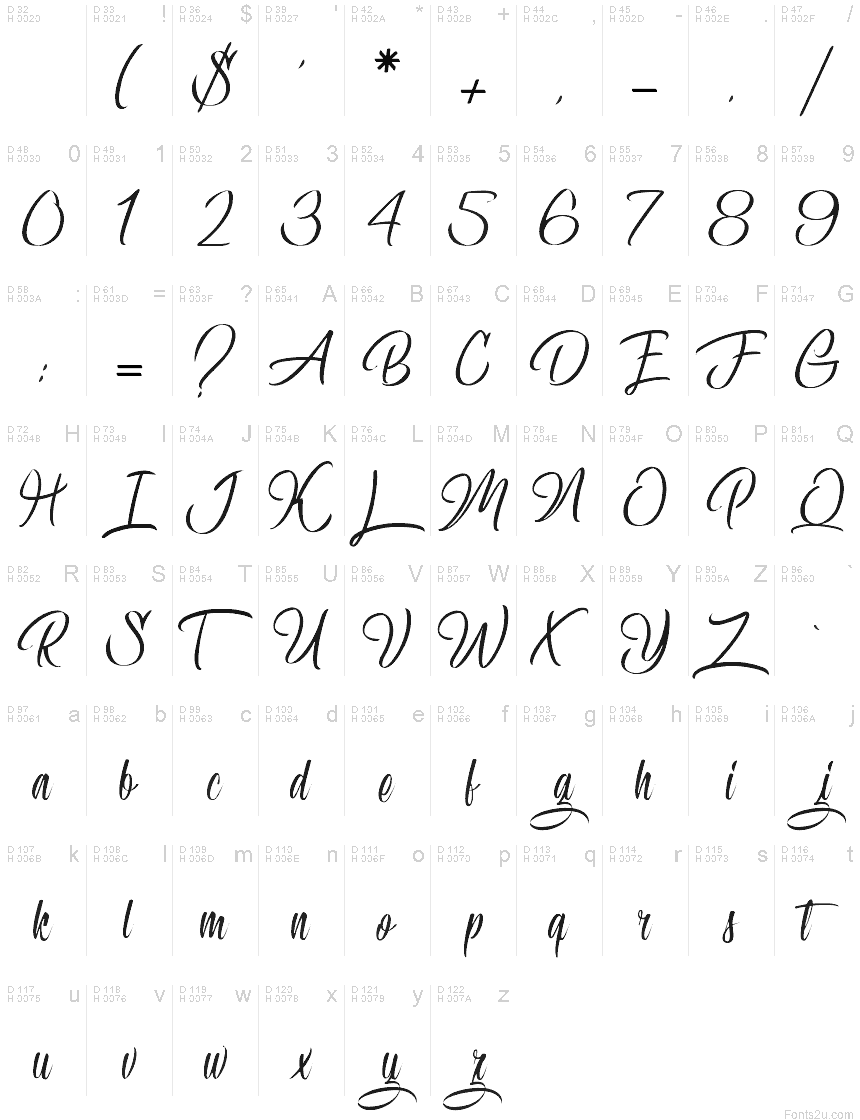 D 32 D 33 ! D 36 $ D 39 ' D 42 * D 43 + D 44 , D 45 - D 46 . D 47 /
H 0020 H 0021 H 0024 H 0027 H 002A H 002B H 002C H 002D H 002E H 002F
( $ ' * + , - . /
D 48 0 D 49 1 D 50 2 D 51 3 D 52 4 D 53 5 D 54 6 D 55 7 D 56 8 D 57 9
H 0030 H 0031 H 0032 H 0033 H 0034 H 0035 H 0036 H 0037 H 0038 H 0039
0 1 2 3 4 5 6 7 8 9
D 58 : D 61 = D 63 ? D 65 A D 66 B D 67 C D 68 D D 69 E D 70 F D 71 G
H 003A H 003D H 003F H 0041 H 0042 H 0043 H 0044 H 0045 H 0046 H 0047
: = ? A B C D E F G
D 72 H D 73 I D 74 J D 75 K D 76 L D 77 M D 78 N D 79 O D 80 P D 81 Q
H 0048 H 0049 H 004A H 004B H 004C H 004D H 004E H 004F H 0050 H 0051
H I J K L M N O P Q
D 82 R D 83 S D 84 T D 85 U D 86 V D 87 W D 88 X D 89 Y D 90 Z D 96 `
H 0052 H 0053 H 0054 H 0055 H 0056 H 0057 H 0058 H 0059 H 005A H 0060
R S T U V W X Y Z `
D 97 a D 98 b D 99 c D 100 d D 101 e D 102 f D 103 g D 104 h D 105 i D 106 j
H 0061 H 0062 H 0063 H 0064 H 0065 H 0066 H 0067 H 0068 H 0069 H 006A
a b c d e f g h i j
D 107 k D 108 l D 109 m D 110 n D 111 o D 112 p D 113 q D 114 r D 115 s D 116 t
H 006B H 006C H 006D H 006E H 006F H 0070 H 0071 H 0072 H 0073 H 0074
k l m n o p q r s t
D 117 u D 118 v D 119 w D 120 x D 121 y D 122 z
H 0075 H 0076 H 0077 H 0078 H 0079 H 007A
u v w x y z
Fonts2u.com